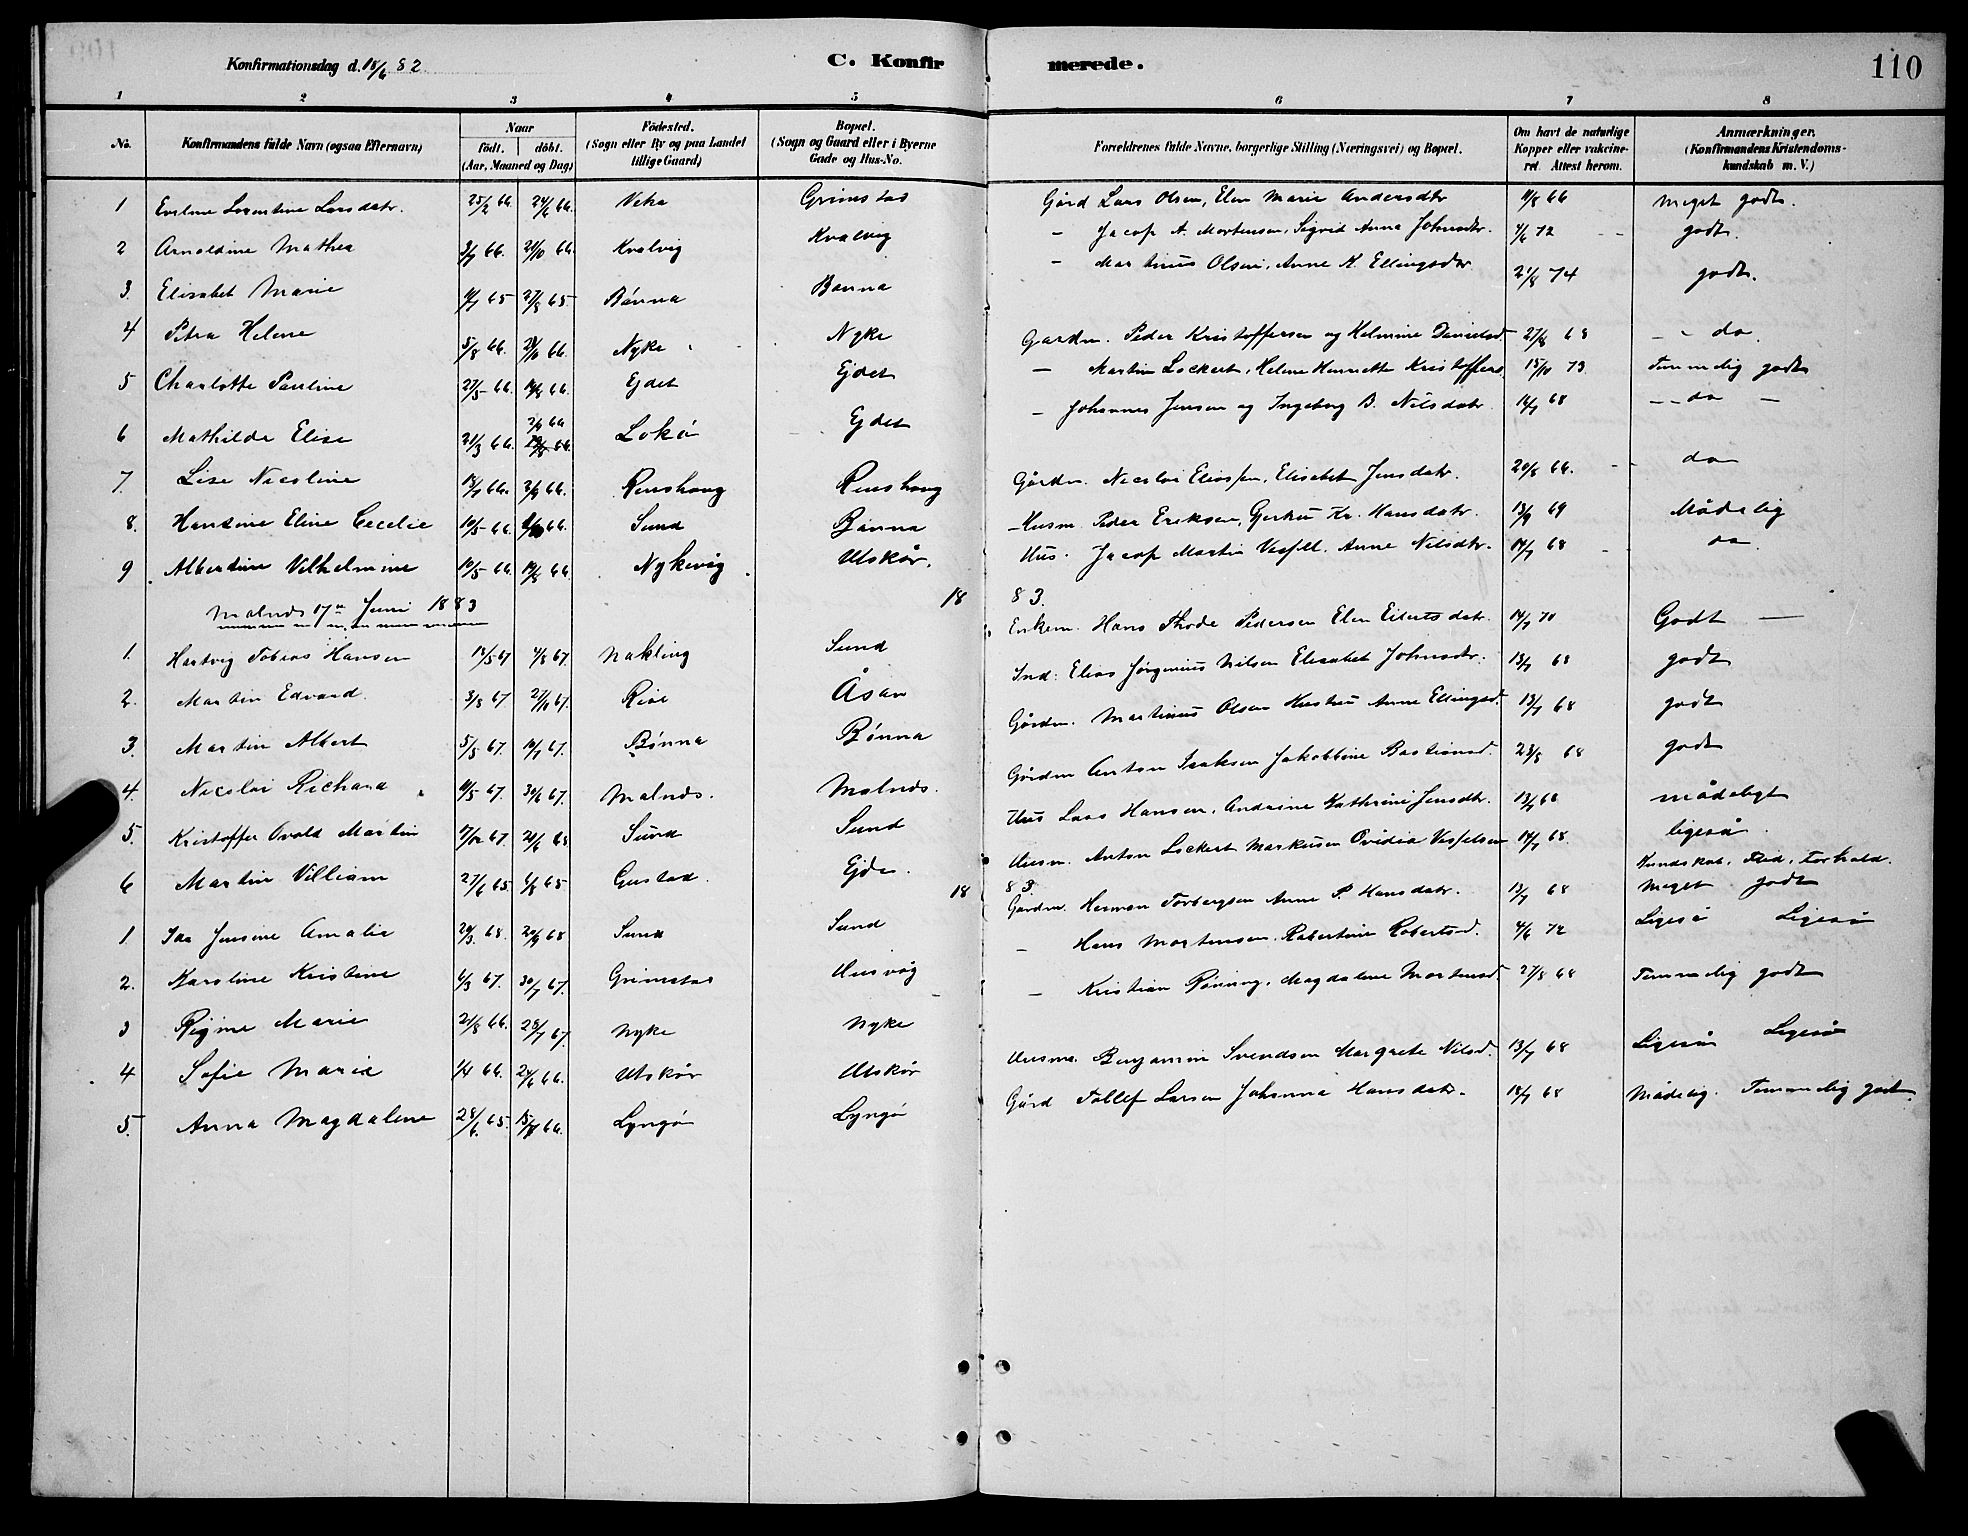 Konfirmationsdag d. 18/6 82. C. Konfirmerede. 110
1 2 3 4 5 6 7 8
No. Konfirmandens fulde Navn (ogsaa Efternavn) Naar födt. döbt. (Aar, Maaned og Dag) Födested. (Sogn eller By og paa Landet tillige Gaard) Bopæl. (Sogn og Gaard eller i Byerne Gade og Hus-No. Forældrenes fulde Navne, borgerlige Stilling (Næringsvei) og Bopæl. Om havt de naturlige Kopper eller vakcineret. Attest herom. Anmærkninger. (Konfirmandens Kristendomskundskab m. V.)
1 Eveline Laxentine Larsdatr. 25/2 66. 24/6 66. Grimstad Gård Lars Olsen, Elen Marie Andersdtr 11/8 66 meget godt.
2 Arnoldine Mathea 3/7 66. 21/10 66. Kvalvig Kvalvig – Jacop A. Mortensen, Sigrid Anna Johnsdtr. 4/6 72 godt.
3. Elisabet Marie 11/7 65 27/8 65 Bønna Bønna – Martinus Olsen, Anne K. Ellingsdtr 21/8 74 godt.
4 Petra Helene 5/8 66. 21/10 66. Nyke Nyke Gardm. Peder Kristoffersen og Helmine Danielsd. 27/8 68 – do.
5 Charlotte Pauline 27/5 66. 19/8 66. Ejdet Ejdet – Martin Lockert, Helene Henrette Kristoffers. 15/10 73. Temmelig godt
6 Mathilde Elise 21/3 66. 2/9 66 Lokø Ejdet – Johannes Jensen og Ingeborg B. Nilsdatr. 14/7 68 – do –
7. Lise Nicoline 2/9 66. Renshaug Renshaug Gårdm. Nicolai Eliassen, Elisabet Jensdatr. 20/8 66. do
8. Hansine Eline Cecelie 10/5 66. Sund Bønna – Husm. Peder Eriksen, Gertru Kr. Hansdatr. 13/9 69 Mådelig
9 Albertine Vilhelmine 10/5 66. 19/8 66. Nykvåg Utskår. Hus. Jacop Martin Vesfell. Anne Nilsdtr. 14/7 68 do
Malnes 17de Juni 1883 18 83.
1. Hartvig Tobias Hansen 12/5 67 4/8 67. Nakling Sund Enkem. Hans Thode Pedersen Elen Eilertsdatr. 14/7 70 Godt –
2. Martin Edvard. 3/8 67. 27/10 67. Rise Åsan Ind: Elias Jørgenius Nilsen Elisabet Johnsdtr. 13/7 68 godt
3. Martin Albert 5/5 67. 14/7 67. Bønna Bønna Gårdm. Martinus Olsen Hustru Anne Ellingsd. 13/7 68 godt
4. Nicolai Richard 11/5 67. 30/6 67. Malnes. Malnes. Gårdm Anton Isaksen Jakobbine Bastiansd. 23/8 68 godt
5. Kristoffer Ovald Martin 7/12 67. 21/6 68 Sund Sund Hus Lars Hansen, Andrine Kathrine Jensdtr. 13/7 68 mådeligt
6 Martin Villiam 27/6 65. 6/8 65 Gustad. Ejde. Husm. Anton Lockert Markusen Ovidia Vesselsen 14/7 68. ligeså.
18 83. Kundskab, Flid, Forhold.
1. Ida Jensine Amalie 24/3 68. 20/9 68 Sund Sund Gårdm. Herman Torbergsen Anne P. Hansdatr. 13/7 68 Meget godt
2. Karoline Kristine 6/3 67. 30/7 67. Grimstad Husvåg – Hans Mortensen. Robertine Robertsd. 4/6 72 Ligeså Ligeså
3 Regine Marie 21/8 66. 28/7 67. Nyke Nyke – Kristian Rønning, Magdalene Mortensd 27/8 68 Temmelig godt
4 Sofie Marie 1/4 66. 24/6 66. Utskår Utskår Husma. Benjamin Svendsen Margrete Nilsd. 13/7 68 Ligeså Ligeså
5. Anna Magdalene 28/6 65. Lyngø Lyngø Gård Tollef Larsen Johanna Hansdatr. 18/7 68 Mådelig. Temmelig godt.